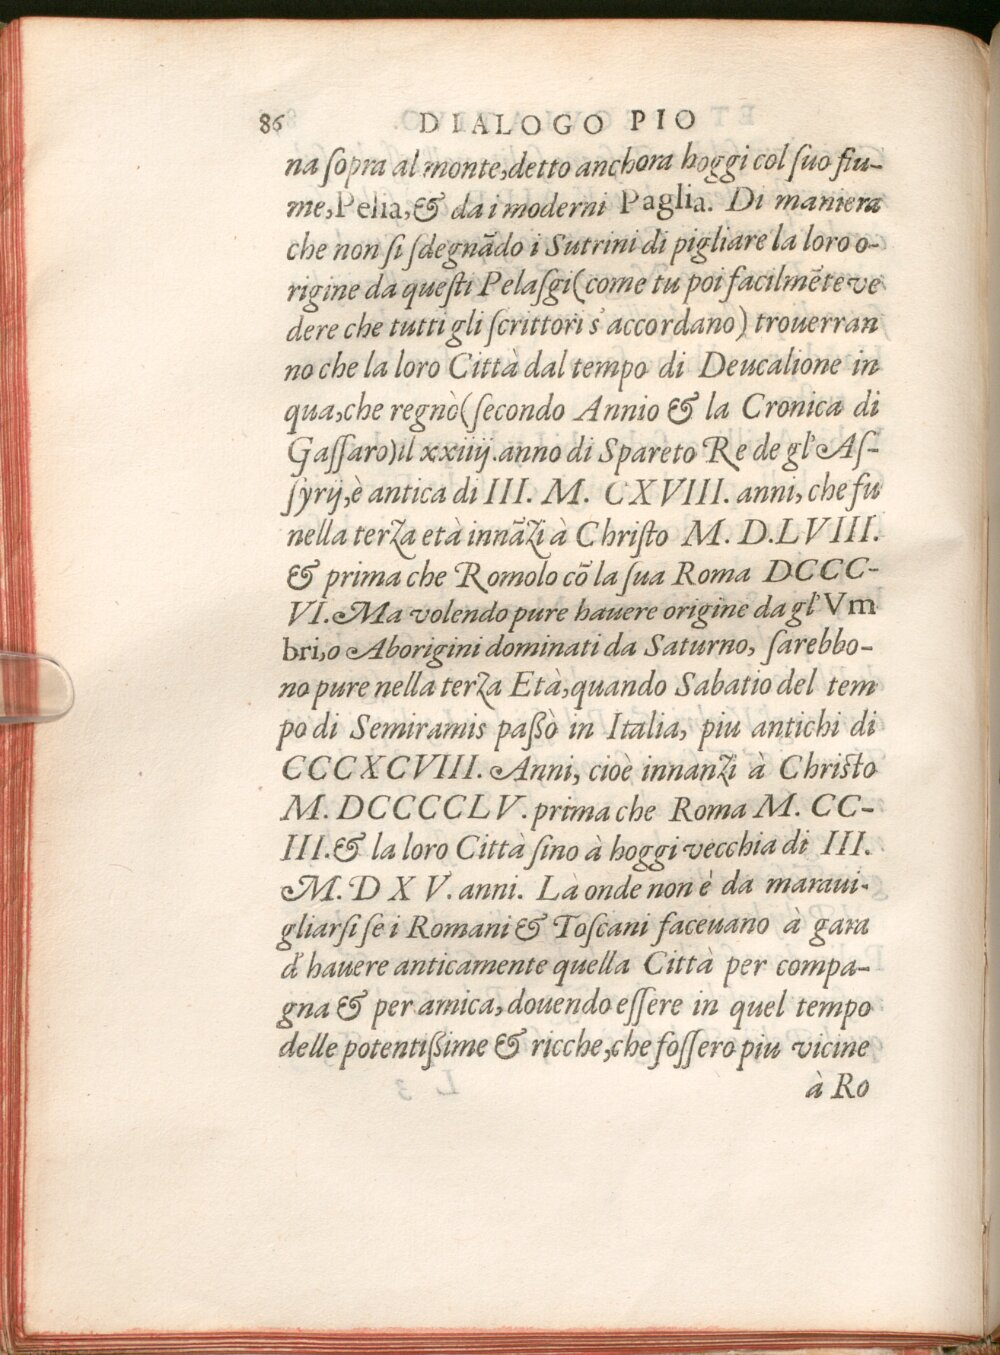 86 DIALOGO PIO
na ſopra al monte,detto anchora hoggi col ſuo fiu-
me,Pelia,& da i moderni Paglia. Di maniera
che non ſi ſdegnādo i Sutrini di pigliare la loro o-
rigine da queſti Pelaſgi(come tu poi facilmēte ve
dere che tutti gli ſcrittori s'accordano) trouerran
no che la loro Città dal tempo di Deucalione in
qua,che regnò(ſecondo Annio & la Cronica di
Gaſſaro)il xxiiij.anno di Spareto Re de gl'Aſ-
ſyrij,è antica di III. M. CXVIII. anni, che fu
nella terza età innāzi à Chriſto M. D.LVIII.
& prima che Romolo cō la ſua Roma DCCC-
VI. Ma volendo pure hauere origine da gl'Vm
bri,o Aborigini dominati da Saturno, ſarebbo-
no pure nella terza Età,quando Sabatio del tem
po di Semiramis paßò in Italia, piu antichi di
CCCXCVIII. Anni, cioè innanzi à Chriſto
M. DCCCCLV. prima che Roma M. CC-
III.& la loro Città ſino à hoggi vecchia di III.
M. D X V. anni. Là onde non è da maraui-
gliarſi ſe i Romani & Toſcani faceuano à gara
d'hauere anticamente quella Città per compa-
gna & per amica, douendo eſſere in quel tempo
delle potentißime & ricche,che foſſero piu vicine
à Ro